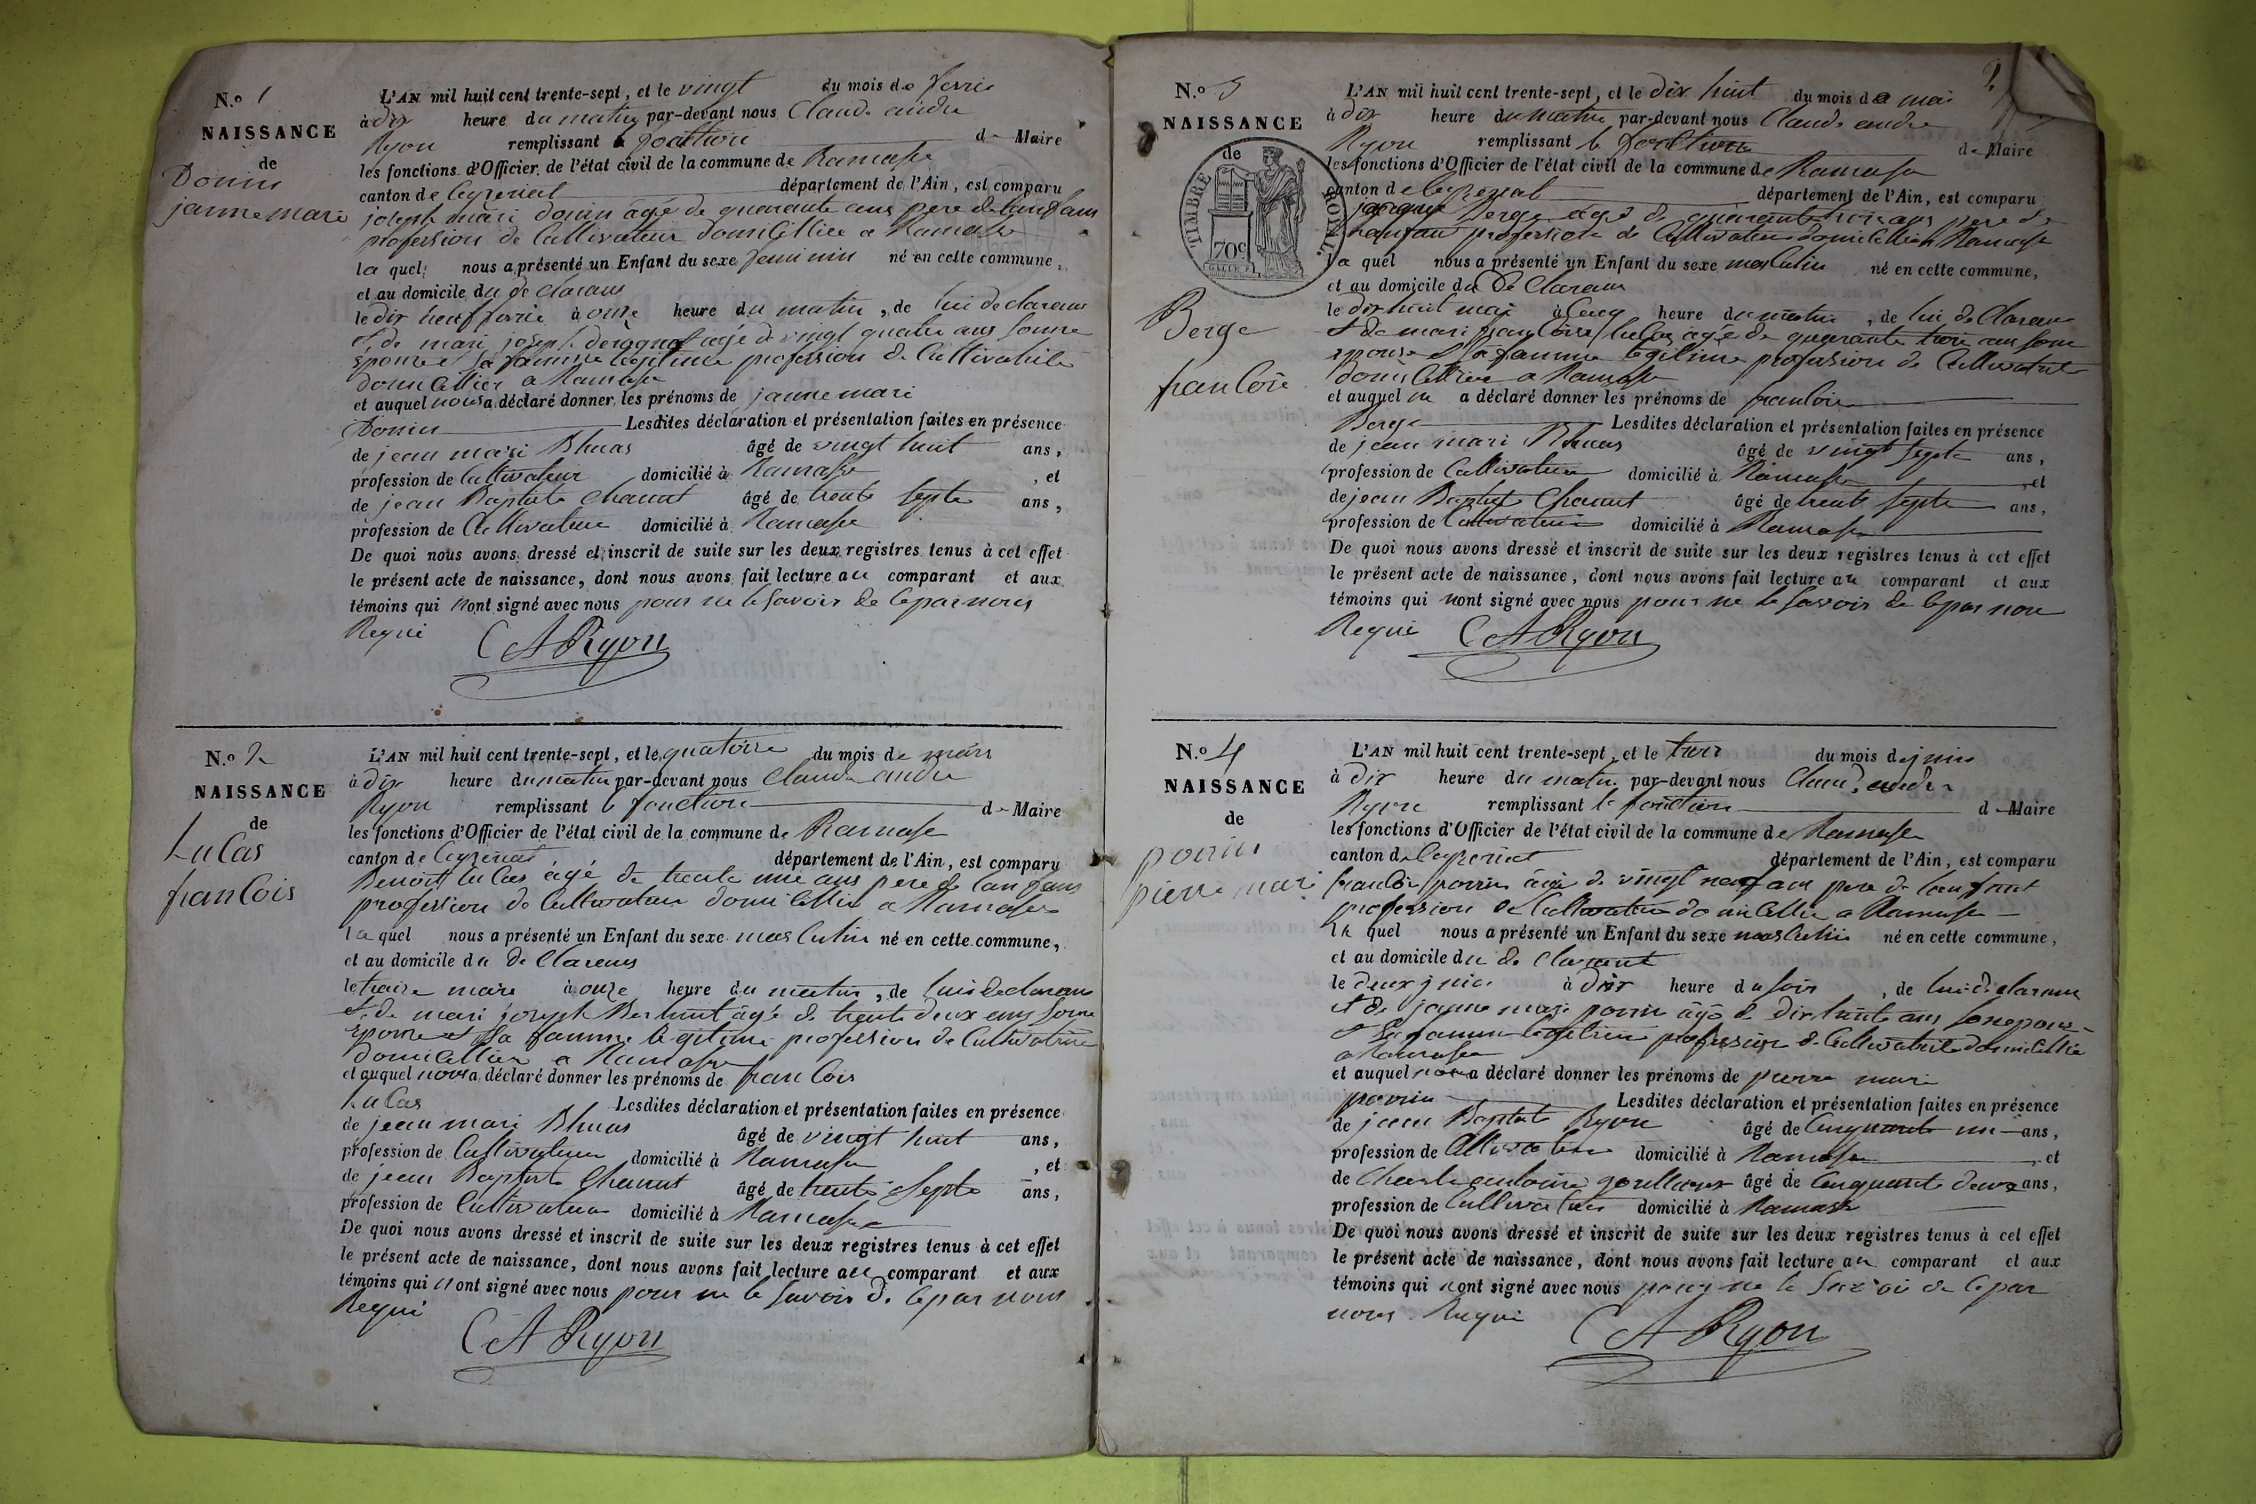 N.º 1
NAISSANCE
de
Donin
janne mari
L'AN mil huit cent trente-sept, et le vingt du mois de fevrie
à dix heure du matin par-devant nous Claude andre
Ryon remplissant le fonction de Maire
les fonctions d'Officier de l'état civil de la commune de Ramasse
canton de Ceyzeriat département de l'Ain, est comparu
joseph mari donin âgé de quarante ans pere de lanfans
profession de Cultivateur domicillier a Ramasse
la quel nous a présenté un Enfant du sexe feminin né en cette commune,
et au domicile du de Clarans
le dix neuf fevrie à onze heure du matin, de lui declarans
et de mari joseph âgé de vingt quatre ans sonne
epouse et sa famme legitime profession de Cultivatrice
domicillier a Ramasse
et auquel nous a déclaré donner les prénoms de janne mari
Donin Lesdites déclaration et présentation faites en présence
de jean mari Bhuas âgé de vingt huit ans,
profession de Cultivateur domicilié à Ramasse, et
de jean Baptiste Chanut âgé de trente septe ans,
profession de Cultivateur domicilié à Ramasse
De quoi nous avons dressé et inscrit de suite sur les deux registres tenus à cet effet
le présent acte de naissance, dont nous avons fait lecture au comparant et aux
témoins qui nont signé avec nous pour ne le savoir de ce par nous
Requi
CA Ryon
N.º 2
NAISSANCE
de
Lucas
francois
L'AN mil huit cent trente-sept, et le quatorze du mois de mars
à dix heure du matin par-devant nous Claude andre
Ryon remplissant le fonction de Maire
les fonctions d'Officier de l'état civil de la commune de Ramasse
canton de Ceyzeriat département de l'Ain, est comparu
Benoit lucas âgé de trente une ans pere de lanfans
profession de Cultivateur domicillier a Ramasse
la quel nous a présenté un Enfant du sexe masculin né en cette commune,
et au domicile du de Clarens
le traize mars à onze heure du matin, de lui declarans
et de mari joseph Berhut âgé de trente deux ans sonne
epouse et sa famme legitime profession de Cultivatrice
domicillier a Ramasse
et auquel nous a déclaré donner les prénoms de francois
Lucas Lesdites déclaration et présentation faites en présence
de jean mari Bhuas âgé de vingt huit ans,
profession de Cultivateur domicilié à Ramasse, et
de jean Baptiste Chanut âgé de trente septe ans,
profession de Cultivateur domicilié à Ramasse
De quoi nous avons dressé et inscrit de suite sur les deux registres tenus à cet effet
le présent acte de naissance, dont nous avons fait lecture au comparant et aux
témoins qui nont signé avec nous pour ne le savoir de ce par nous
Requi
CA Ryon
2
N.º 3
NAISSANCE
de
TIMBRE ROYAL
70c
Berge
francoise
L'AN mil huit cent trente-sept, et le dix huit du mois de mai
à dix heure du matin par-devant nous Claude andre
Ryon remplissant le fonction de Maire
les fonctions d'Officier de l'état civil de la commune de Ramasse
canton de Ceyzeriat département de l'Ain, est comparu
jacque Berge âgé de quarante trois ans pere de
lanfan profession de Cultivateur domicillier a Ramasse
la quel nous a présenté un Enfant du sexe masculin né en cette commune,
et au domicile du de Clarans
le dix huit mai à cinq heure du matin, de lui de Clarans
et de mari francoise lucas âgé de quarante trois ans sonne
epouse et sa famme legitime profession de Cultivatrice
domicillier a Ramasse
et auquel on a déclaré donner les prénoms de francois
Berge Lesdites déclaration et présentation faites en présence
de jean mari Bhuas âgé de vingt septe ans,
profession de Cultivateur domicilié à Ramasse, et
de jean Baptiste Chanut âgé de trente septe ans,
profession de Cultivateur domicilié à Ramasse
De quoi nous avons dressé et inscrit de suite sur les deux registres tenus à cet effet
le présent acte de naissance, dont nous avons fait lecture au comparant et aux
témoins qui nont signé avec nous pour ne le savoir de ce par nou
Requi
CA Ryon
N.º 4
NAISSANCE
de
pierre mari
L'AN mil huit cent trente-sept, et le trois du mois de juin
à dix heure du matin par-devant nous Claude andre
Ryon remplissant le fonction de Maire
les fonctions d'Officier de l'état civil de la commune de Ramasse
canton de Ceyzeriat département de l'Ain, est comparu
francois âgé de vingt neuf ans pere de lanfant
profession de Cultivateur domicillie a Ramasse
la quel nous a présenté un Enfant du sexe masculin né en cette commune,
et au domicile du de Clarant
le deux juin à dix heure du soir, de lui declarans
et de janne mari âgé de dix huite ans son epouse
et sa famme legitime profession de Cultivatrice domicillie
a Ramasse
et auquel nous a déclaré donner les prénoms de pierre mari
Lesdites déclaration et présentation faites en présence
de jean Baptiste Ryon âgé de cinquante un ans,
profession de Cultivateur domicilié à Ramasse, et
de Charle antoine âgé de cinquante deux ans,
profession de Cultivateur domicilié à Ramasse
De quoi nous avons dressé et inscrit de suite sur les deux registres tenus à cet effet
le présent acte de naissance, dont nous avons fait lecture au comparant et aux
témoins qui nont signé avec nous pour ne le savoi de ce par
nous Requi
CA Ryon